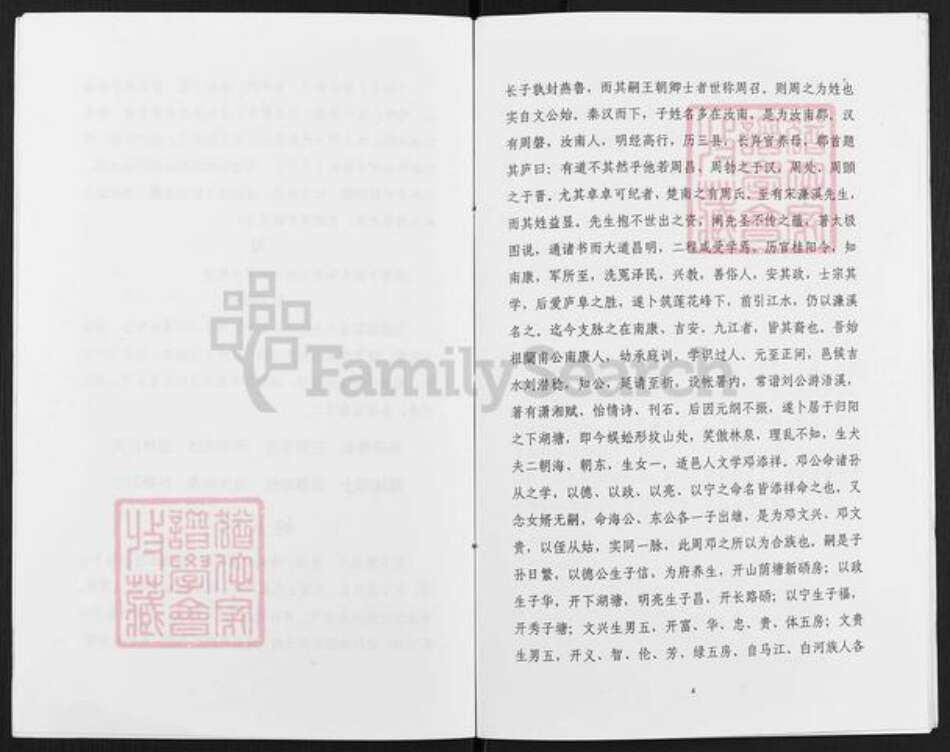 长子孰封燕鲁，而其嗣王朝卿士者世称周召。则周之为姓也
实自文公始。秦汉而下，子姓名多在汝南，是为汝南郡，汉
有周磐，汝南人，明经高行，历三县，长弃官养母，都首题
其庐曰：有道不其然乎他若周昌、周勃之于汉，周处、周顗
之于晋。尤其卓卓可纪者，楚南之有周氏。至有宋濂溪先生，
而其姓益显。先生抱不世出之资，阐先圣不传之蕴，著太极
图说，通诸书而大道昌明，二程咸受学焉，历官桂阳令，知
南康，军所至，洗冤泽民，兴教，善俗人，安其政，士宗其
学，后爱庐阜之胜，遂卜筑莲花峰下，前引江水，仍以濂溪
名之。迄今支脉之在南康、吉安、九江者，皆其裔也。吾始
祖闌甫公南康人，幼承庭训，学识过人、元至正间，邑侯吉
水刘潜稔，知公，延请至祈，设帐署内，常谐刘公游浯溪，
著有潇湘赋，怡情诗、刊石。后因元纲不振，遂卜居于归阳
之下湖塘，即今蜈蚣形坟山处，笑傲林泉，理乱不知，生犬
夫二朝海、朝东，生女一，适邑人文学邓添祥。邓公命诸孙
从之学，以德、以政、以亮、以宁之命名皆添祥命之也，又
念女婿无嗣，命海公、东公各一子出继，是为邓文兴、邓文
贵，以侄从姑，实同一脉，此周邓之所以为合族也。嗣是子
孙日繁，以德公生子信，为府养生，开山荫塘新硕房；以政
生子华，开下湖塘，明亮生子昌，开长路硕；以宁生子福，
开秀子塘；文兴生男五，开富、华、忠、贵、体五房；文贵
生男五，开义、智、伦、芳、绿五房，自马江、白河族人各
4
FamilySearch
譜學會
收藏